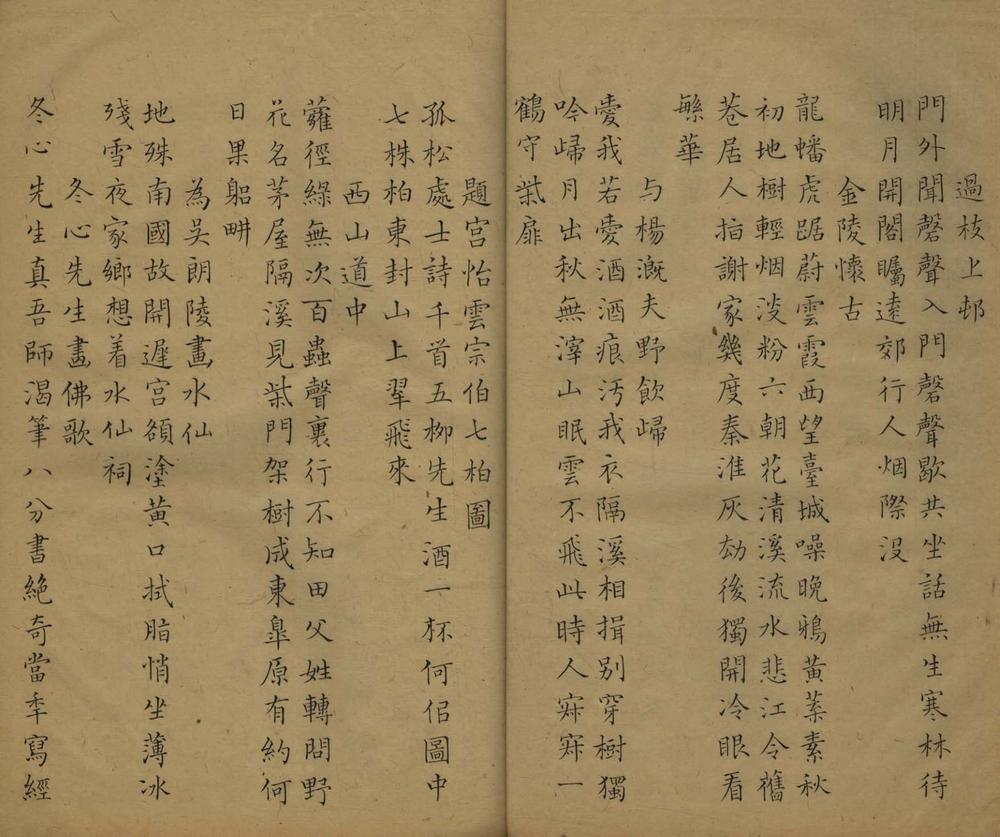 過枝上邨
門外聞磬聲入門磬聲歇共坐話無生寒林待
明月開閣矚遠郊行人烟際没
金陵懷古
龍蟠虎踞蔚雲霞西望臺城噪晚鴉黄葉素秋
初地樹輕烟淡粉六朝花清溪流水悲江令舊
巷居人指謝家幾度秦淮灰劫後獨開冷眼看
繁華
与楊溉夫野飲歸
愛我若愛酒酒痕汚我衣隔溪相揖别穿樹獨
吟歸月出秋無滓山眠雲不飛此時人寂寂一
鶴守柴扉
題宫怡雲宗伯七柏圖
孤松處士詩千首五栁先生酒一杯何侣圖中
七株柏東封山上翠飛來
西山道中
蘿徑緑無次百蟲聲裏行不知田父姓轉問野
花名茅屋隔溪見柴門架樹成東臯原有約何
日果躬畊
為吴朗陵畫水仙
地殊南國故開遲宫額塗黄口拭脂悄坐薄冰
殘雪夜家鄉想着水仙祠
冬心先生畫佛歌
冬心先生真吾師渴筆八分書絶奇當年寫經